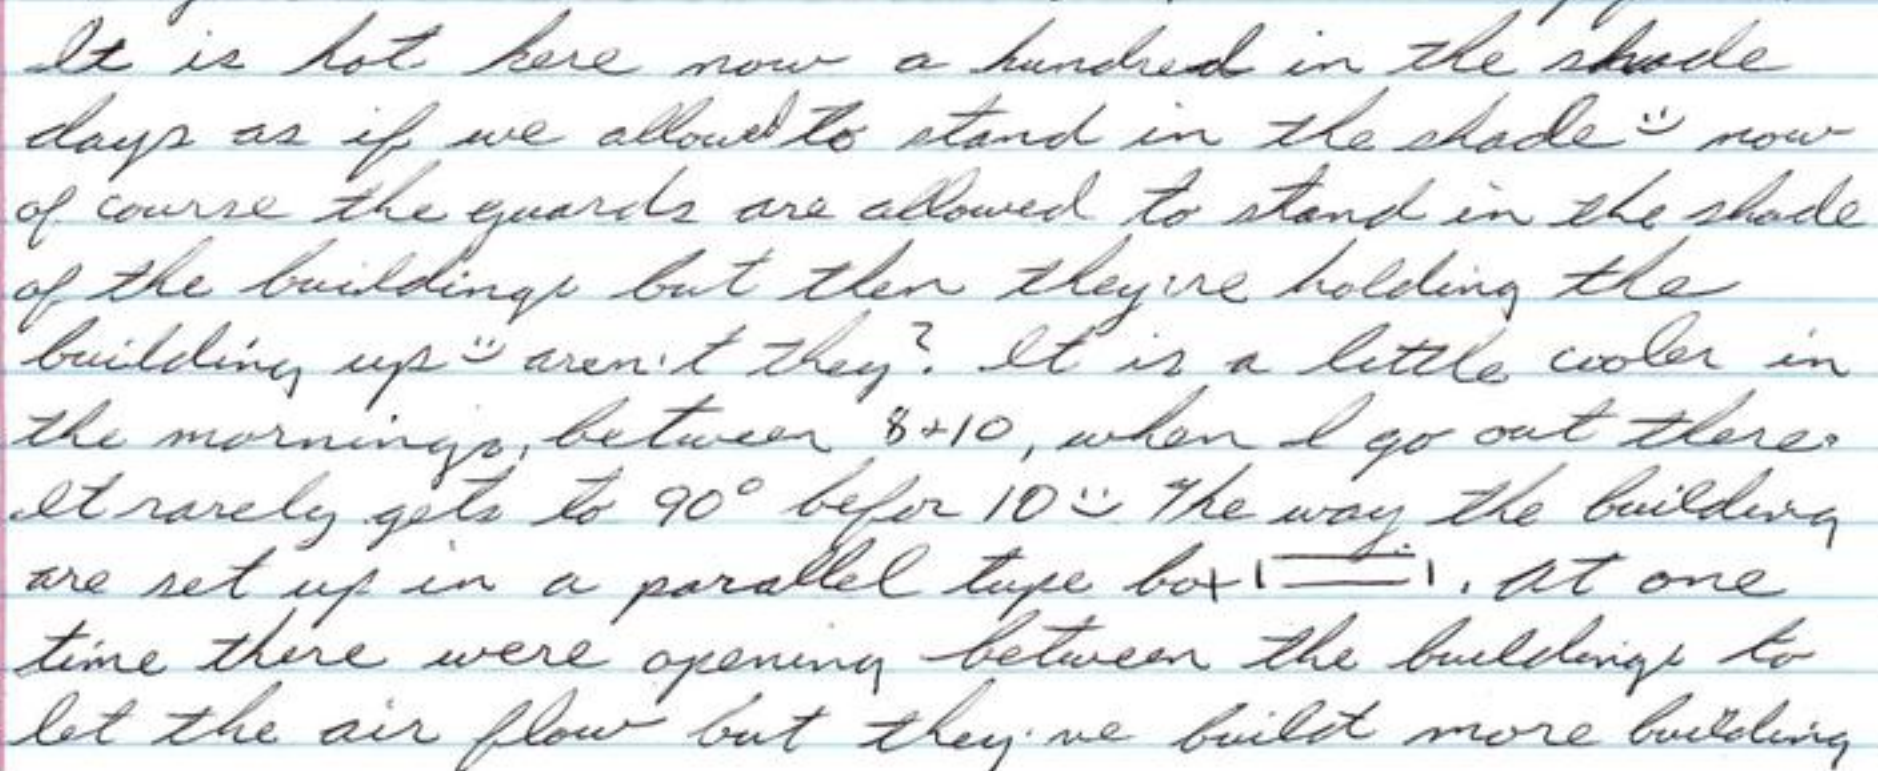 It is hot here now a hundred in the shade
days as if we allowed to stand in the shade :) now
of course the guards are allowed to stand in the shade
of the buildings but then they're holding the
building up :) aren't they? It is a little cooler in
the mornings, between 8+10, when I go out there.
It rarely gets to 90° befor 10 :) The way the building
are set up in a parallel type box. At one
time there were opening between the buildings to
let the air flow but they've build more building